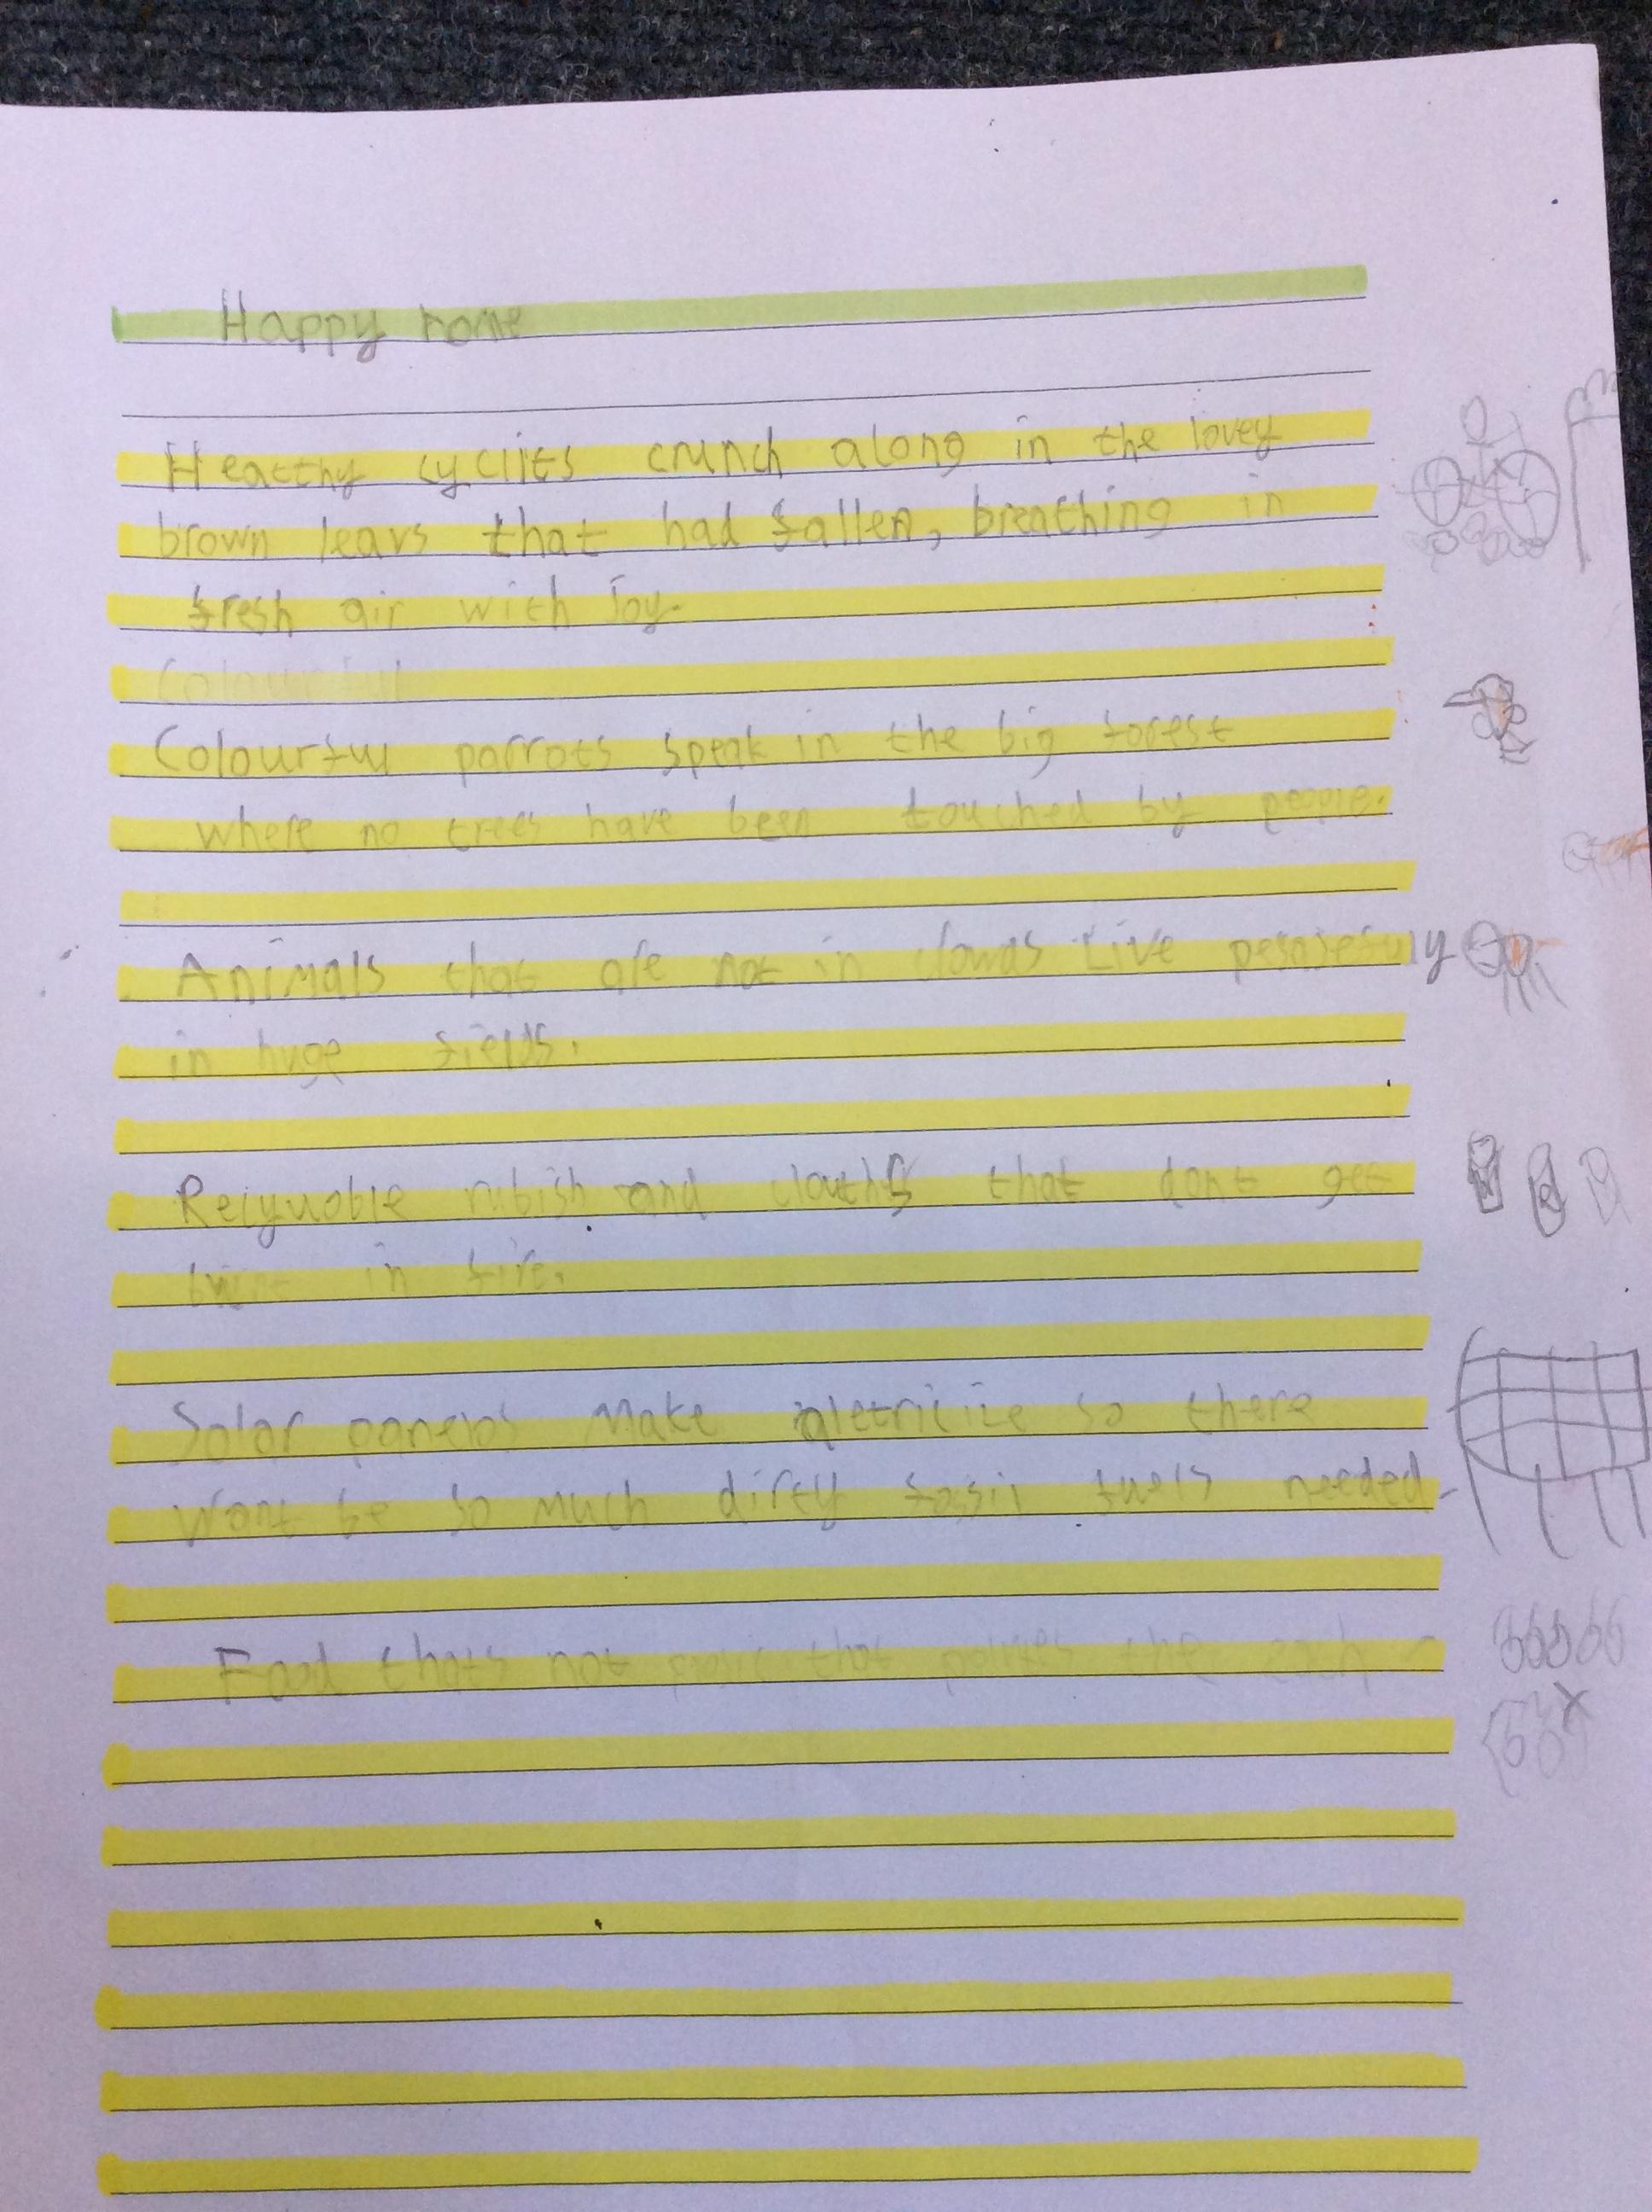 Happy home
Heatthy cyclits crunch along in the lovey
brown leavs that had fallen, breathing in
fresh air with Joy.
Colourful
Colourful parrots speak in the big forest
where no trees have been touched by people.
Animals that are not in Live
in huge fields.
rubish and that dont get
in fire.
Solar panels Make so there
Wont be so much dirty fossil fuels needed.
Food thats not that the